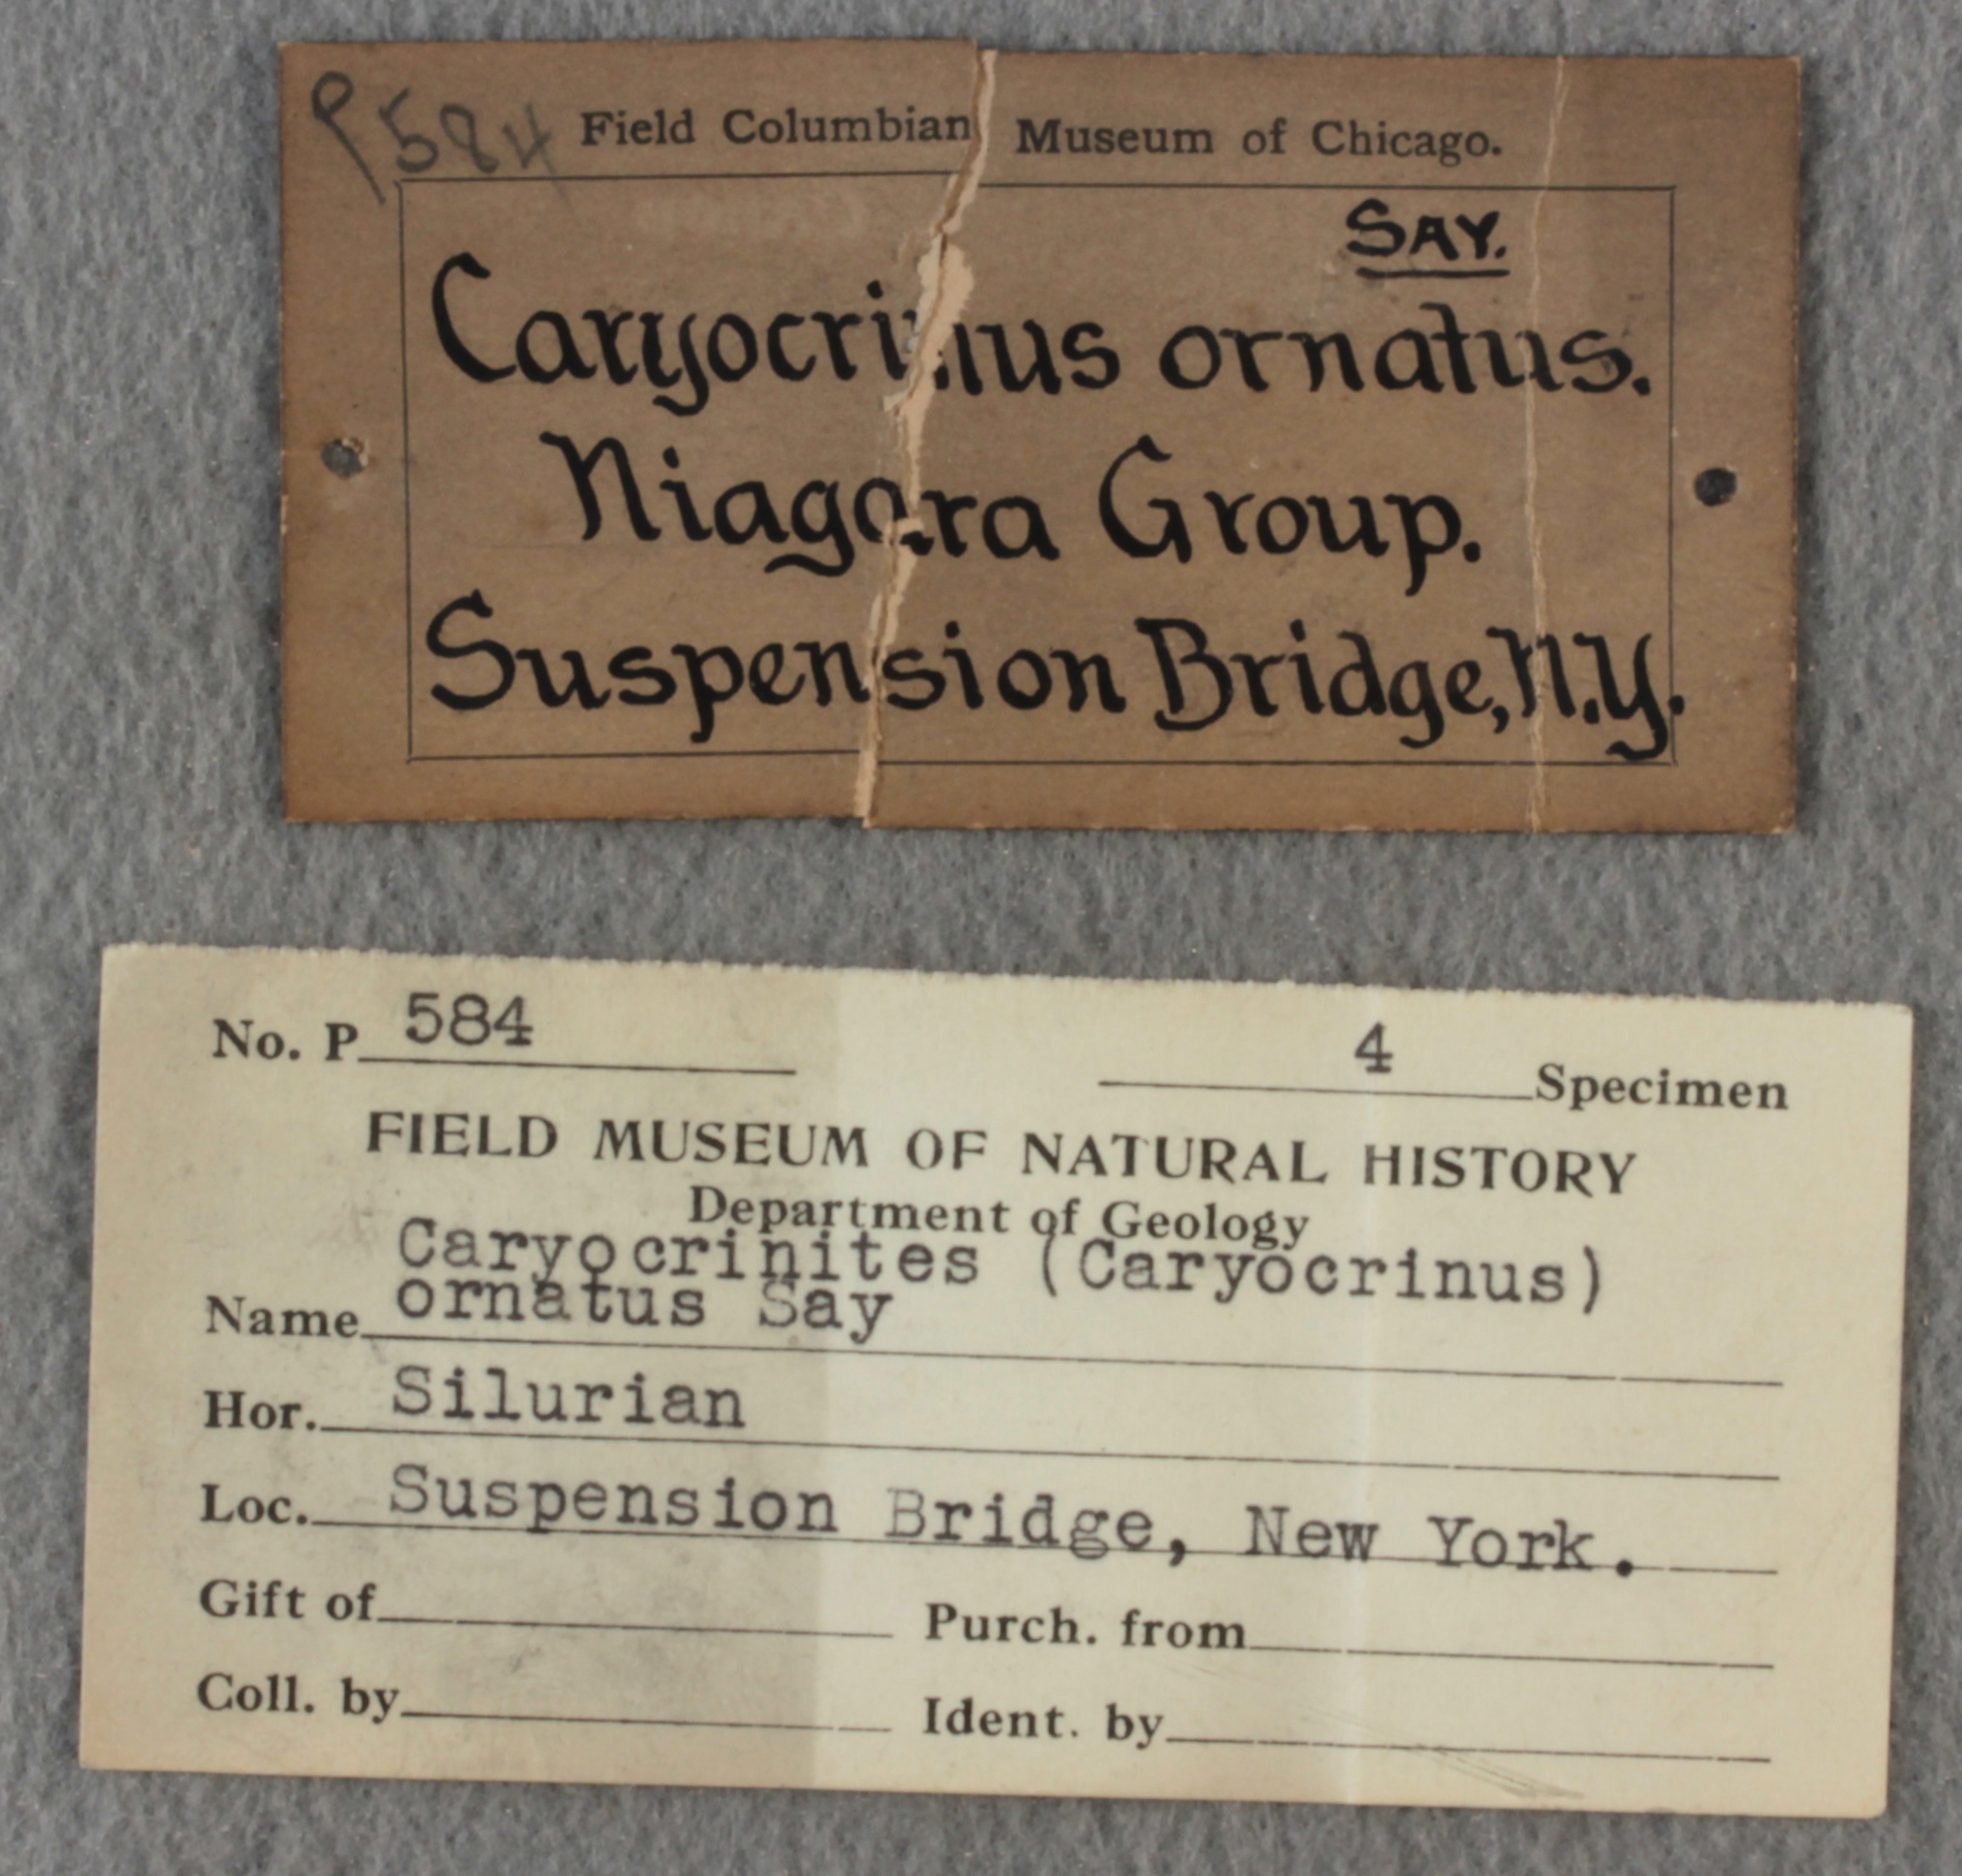 P584 Field Columbian Museum of Chicago.
SAY.
Caryocrinus ornatus.
Niagara Group.
Suspension Bridge, N.Y.
No. P 584 4 Specimen
FIELD MUSEUM OF NATURAL HISTORY
Department of Geology
Caryocrinites (Caryocrinus)
Name ornatus Say
Hor. Silurian
Loc. Suspension Bridge, New York.
Gift of Purch. from
Coll. by Ident. by